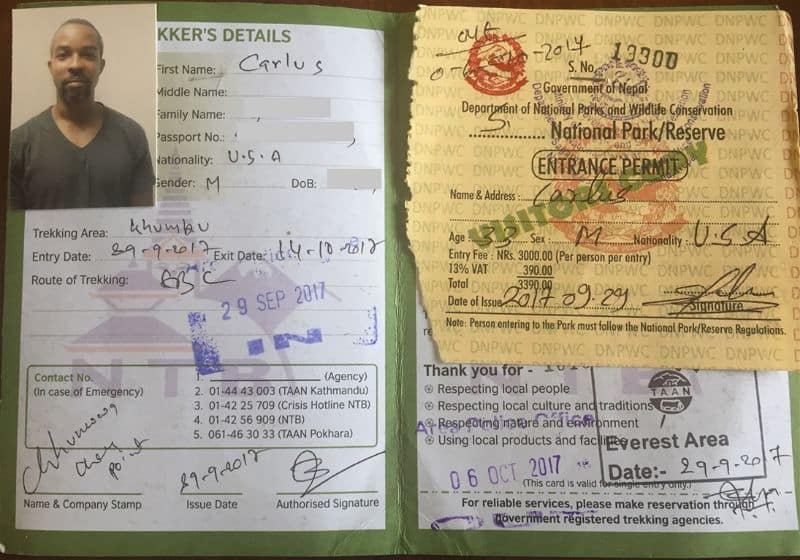 KKER'S DETAILS
First Name: Carlus
Middle Name:
Family Name:
Passport No.:
Nationality: U.S.A
Gender: M DoB:
Trekking Area: Khumbu
Entry Date: 29-9-2017 Exit Date: 14-10-2017
Route of Trekking:
29 SEP 2017
IN
NTB
Contact No.
(In case of Emergency)
1. (Agency)
2. 01-44 43 003 (TAAN Kathmandu)
3. 01-42 25 709 (Crisis Hotline NTB)
4. 01-42 56 909 (NTB)
5. 061-46 30 33 (TAAN Pokhara)
check point
29-9-2017
Name & Company Stamp Issue Date Authorised Signature
out
2017
S. No. 19300
Government of Nepal
Department of National Parks and Wildlife Conservation
S. National Park/Reserve
ENTRANCE PERMIT
Name & Address: Carlus
Age: 33 Sex: M Nationality: U.S.A
Entry Fee : NRs. 3000.00 (Per person per entry)
13% VAT 390.00
Total 3390.00
Date of Issue 2017 09.29 Signature
Note: Person entering to the Park must follow the National Park/Reserve Regulations.
DNPWC
Thank you for -
Respecting local people
Respecting local culture and traditions
Respecting nature and environment
Using local products and facilities
TAAN
Everest Area
Date:- 29-9-2017
06 OCT 2017
(This card is valid for single entry only.)
For reliable services, please make reservation through
government registered trekking agencies.